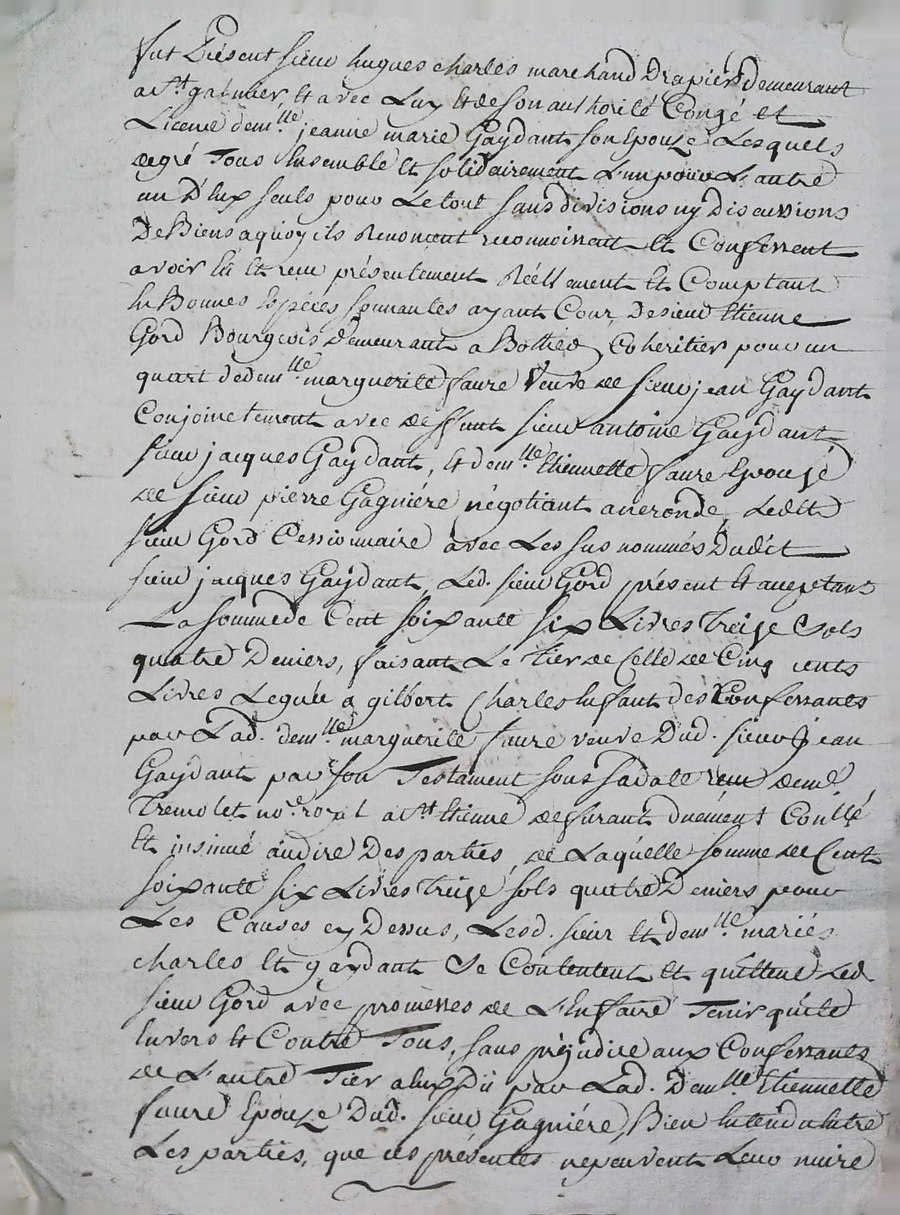 fut Présent sieur hugues charles marchand Drapier Demeurant
a st. galmier Et avec Luy Et de son authorité Congé et
Licence dem.lle jeanne marie Gaydant son Epouze Lesquels
de gré Tous Ensemble Et solidairement L'un pour L'autre
un D'Eux seuls pour Le tout sans divisions ny Discussions
De Biens a quoy ils Renoncent reconnoissent Et Confessent
avoir Eü Et reçu présentement Réellement Et Comptant
En Bonnes Espéces sonnantes ayant Cour, De sieur Etienne
Gord Bourgeois Demeurant a Bothéo, Coheritier pour un
quart de dem.lle marguerite faure veuve de sieur jean Gaydant
Conjoinctement avec deffunt sieur antoine Gaydant
sieur jacques Gaydant, Et dem.lle Etiennette faure Epouze
de sieur pierre Gagniére négotiant a neronde, Ledit
sieur Gord Cessionnaire avec Les sus nommés Dudit
sieur jacques Gaydant, Led. sieur Gord présent Et acceptant
La somme de Cent soixante six Livres Treize sols
quatre Deniers, faisant Le Tier de Celle de Cinq cents
Livres Leguée a gilbert Charles Enfant des Confessants
par Lad. dem.lle marguerite faure veuve Dud. sieur Jean
Gaydant par son Testament sous sa datte reçu de me.
Tremolet no.re royal a st. Etienne de furant duément Contllé
Et insinué audire Des parties, de Laquelle somme de Cent
soixante six Livres Treize sols quatre Deniers pour
Les Causes cy Dessus, Lesd. sieur Et dem.lle mariés
charles Et gaydant se Contentent Et quittent Led.
sieur Gord avec promesses de L'En faire Tenir quitte
Envers Et Contre Tous, sans préjudice aux Confessants
de L'autre Tier a Eux Dû par Lad. Dem.lle Etiennette
faure Epouze Dud. sieur Gagniére, Bien Entendu Entre
Les parties, que ces présentes ne peuvent Leur nuire